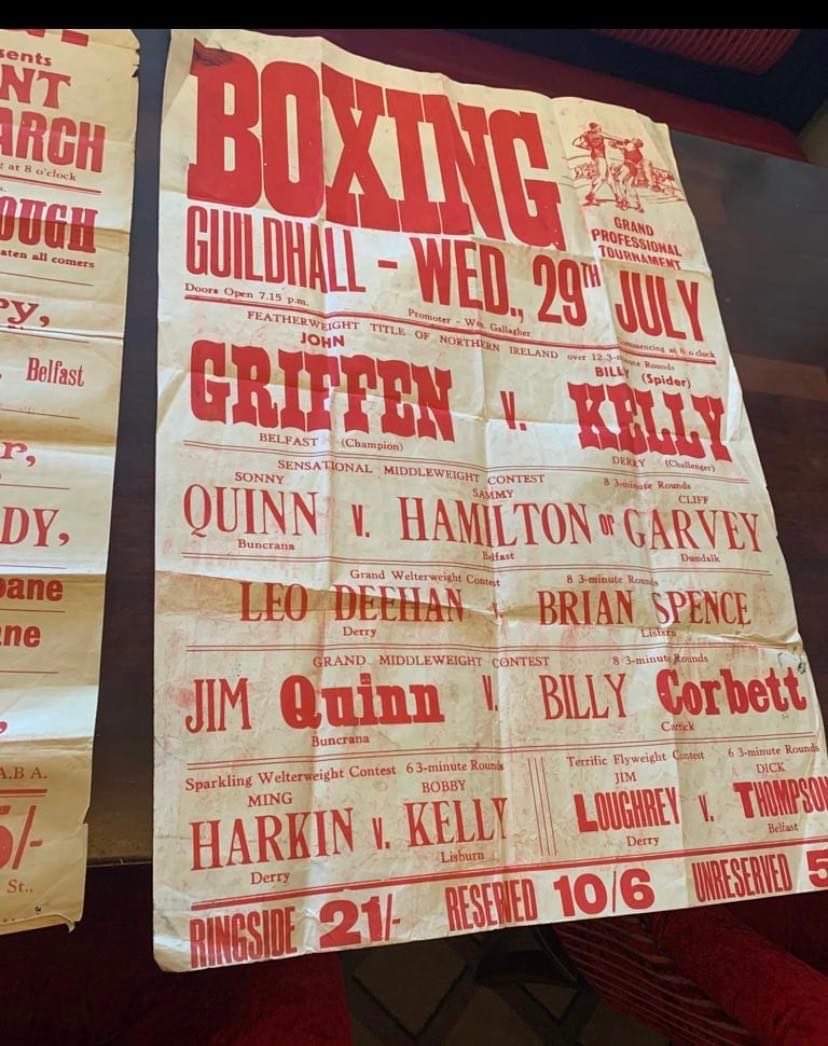 sents
NT
ARCH
t at 8 o'clock
OUGH
aten all comers
ry,
Belfast
r,
DY,
bane
ne
,
A.B A.
5/-
St..
BOXING
GRAND
PROFESSIONAL
TOURNAMENT
GUILDHALL - WED., 29TH JULY
Doors Open 7.15 p.m.
Promoter - Wm. Gallagher
commencing at 8 o'clock
FEATHERWEIGHT TITLE OF NORTHERN IRELAND over 12 3-minute Rounds
JOHN
BILLY (Spider)
GRIFFEN V. KELLY
BELFAST (Champion)
DERRY (Challenger)
SENSATIONAL MIDDLEWEIGHT CONTEST 8 3-minute Rounds
SONNY SAMMY CLIFF
QUINN V. HAMILTON or GARVEY
Buncrana Belfast Dundalk
Grand Welterweight Contest 8 3-minute Rounds
LEO DEEHAN v. BRIAN SPENCE
Derry Lisburn
GRAND MIDDLEWEIGHT CONTEST 8 3-minute Rounds
JIM Quinn V. BILLY Corbett
Buncrana Carrick
Sparkling Welterweight Contest 6 3-minute Rounds
MING BOBBY
HARKIN V. KELLY
Derry Lisburn
Terrific Flyweight Contest 6 3-minute Rounds
JIM DICK
LOUGHREY V. THOMPSON
Derry Belfast
RINGSIDE 21/- RESERVED 10/6 UNRESERVED 5